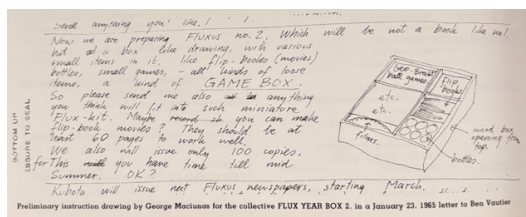 send anything you like!
Now we are preparing Fluxus no. 2. Which will be not a book like no1.
but a box like drawing, with various
small items in it, like flip-books (movies)
bottles, small games, - all kinds of loose
items, a kind of GAME BOX.
So please send me also anything
you think will fit into such miniature
"Flux-kit. Maybe you can make
flip-book movies? They should be at
least 60 pages to work well.
We also will issue only 100 copies.
for This you have time till mid
Summer. OK?
Kubota will issue next Fluxus newspapers, starting March.
Geo. Brecht
ball games
flip
books
etc.
etc.
films.
bottles.
wood box
opening from
top.
BOTTOM UP
ISSURE TO SEAL
Preliminary instruction drawing by George Maciunas for the collective FLUX YEAR BOX 2, in a January 23, 1965 letter to Ben Vautier